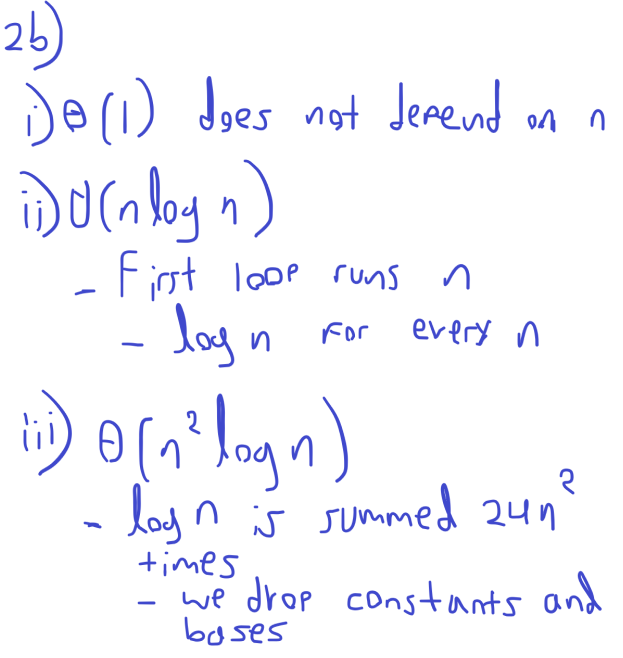 2b)
i) θ(1) does not depend on n
ii) O(n log n)
- First loop runs n
- log n for every n
iii) θ(n² log n)
- log n is summed 24n²
times
- we drop constants and
bases